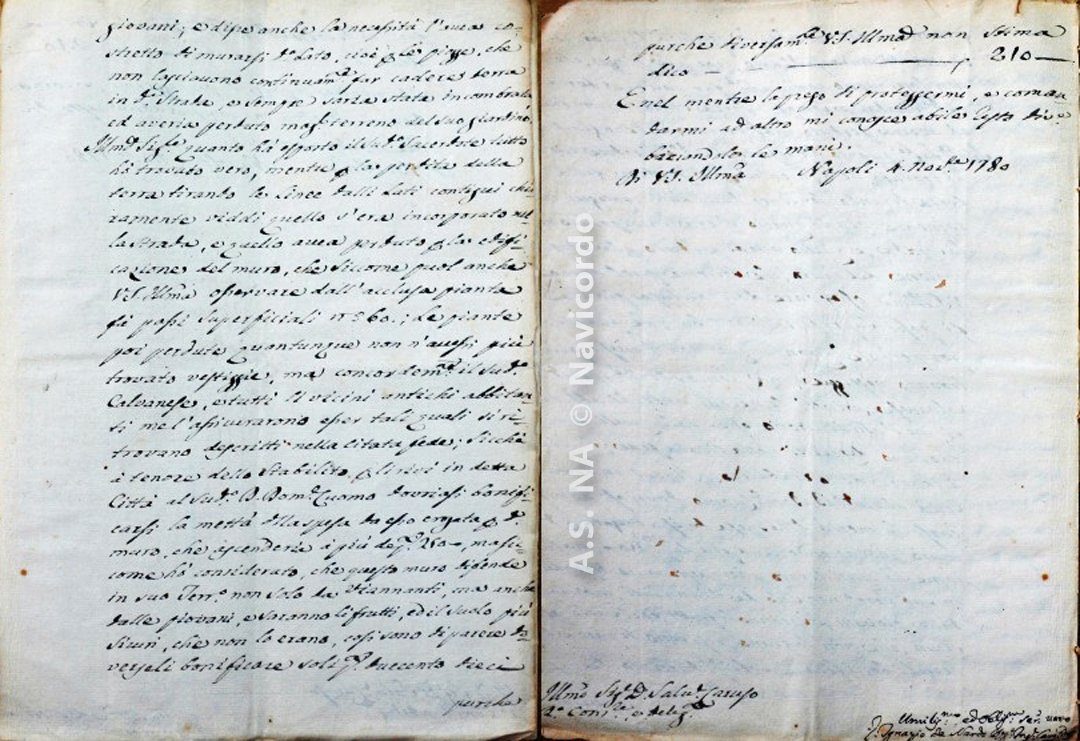 giovani; e disse anche la necessità l'avea co-
stretto di murarsi d.º lato, cioè p le piogge, che
non lasciavono continuam.te far cadere terra
in d.ª Strada, e sempre saria stata incombrata
ed averia perduto mag.r terreno del suo giardino.
Ill.mo Sig.re quanto hà esposto il sud.º Sacerdote tutto
hò trovato vero, mentre p la perdita della
terra tirando le linee dalli lati contigui chia-
ramente viddi quello s'era incorporato nel
la strada, e quello avea perduto p la edifi-
cazione del muro, che siccome puol anche
V.S. Ill.ma osservare dall'acclusa pianta
fù passi superficiali nº 60.; Le piante
poi perdute quantunque non n'avessi più
trovato vestiggie, ma concordem.te il sud.º
Calvanese, e tutti li vicini antichi abbitan-
ti me l'assiverarono esser tali quali si ri-
trovano descritti nella Citata fede; Sicchè
à tenore dello Stabilito p li rivi in detta
Città al Sud.º D. Dom.º Cuomo dovriasi bonifi-
carsi la mettà della spesa da esso erogata p d.º
muro, che ascenderia à più de 250–, ma sic-
come hò considerato, che questo muro difende
in suo Terr.º non solo da Viannanti, ma anche
dalle piovani, e saranno li frutti, ed il suolo più
sicuri, che non lo erano, così sono di parere do-
verseli bonificare soli d. duecento dieci
purche
purche diversam.te V.S. Ill.ma non stima
dico — 210 —
E nel mentre la prego di proteggermi, e coman-
darmi ad altro mi conosce abile resto div.te
baciandoli le mani.
Di V.S. Ill.ma Napoli 4. Nov.e 1780
Ill.mo Sig.r D. Salv.re Caruso
R.º Cons.re, e Deleg.to
Umiliss.mo ed obblig.mo ser.re vero
Ignazio de Nardo
A.S. NA © Navicordo